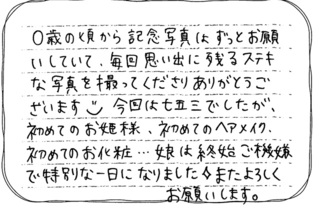 0歳の頃から記念写真はずっとお願
いしていて、毎回思い出に残るステキ
な写真を撮ってくださりありがとうご
ざいます 今回は七五三でしたが、
初めてのお姫様、初めてのヘアメイク、
初めてのお化粧…娘は終始ご機嫌
で特別な一日になりました♢またよろしく
お願いします。